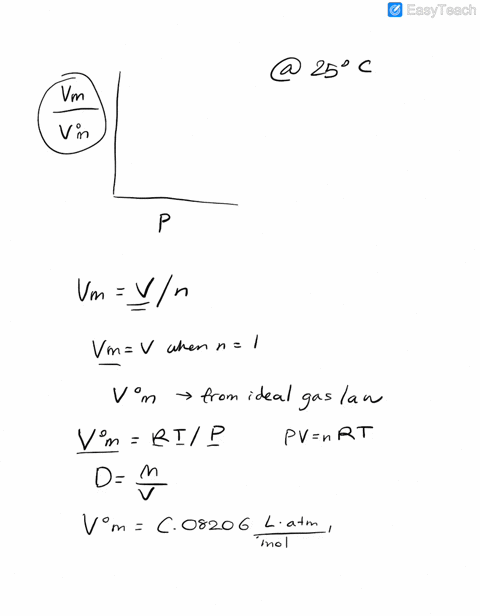 EasyTeach
@ 25° C
Vm
V°m
P
Vm = V/n
Vm = V when n = 1
V°m → from ideal gas law
V°m = RT/P PV = nRT
D = m/V
V°m = C.08206 L·atm/mol